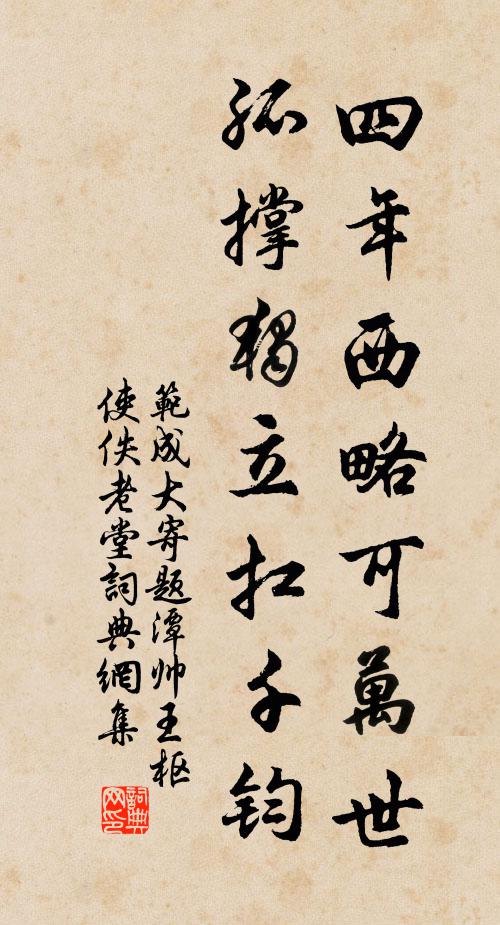 四年西略可萬世
孤撐獨立扛千鈞
範成大寄題潭帅王枢
使佚老堂詞典網集
詞典
网印